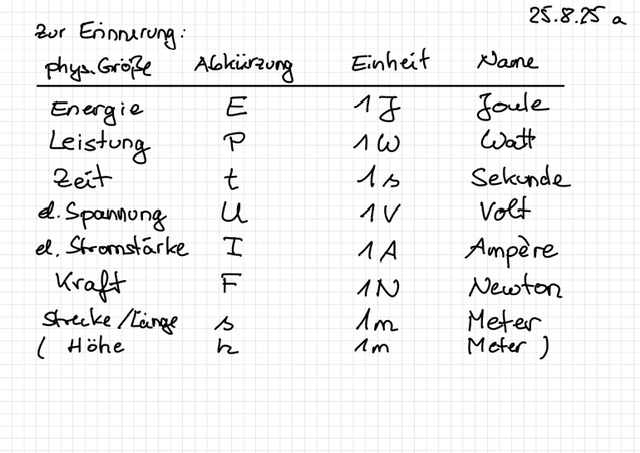 25.8.25 a
Zur Erinnerung:
phys. Größe Abkürzung Einheit Name
Energie E 1 J Joule
Leistung P 1 W Watt
Zeit t 1 s Sekunde
el. Spannung U 1 V Volt
el. Stromstärke I 1 A Ampère
Kraft F 1 N Newton
Strecke/Länge s 1 m Meter
( Höhe h 1 m Meter )